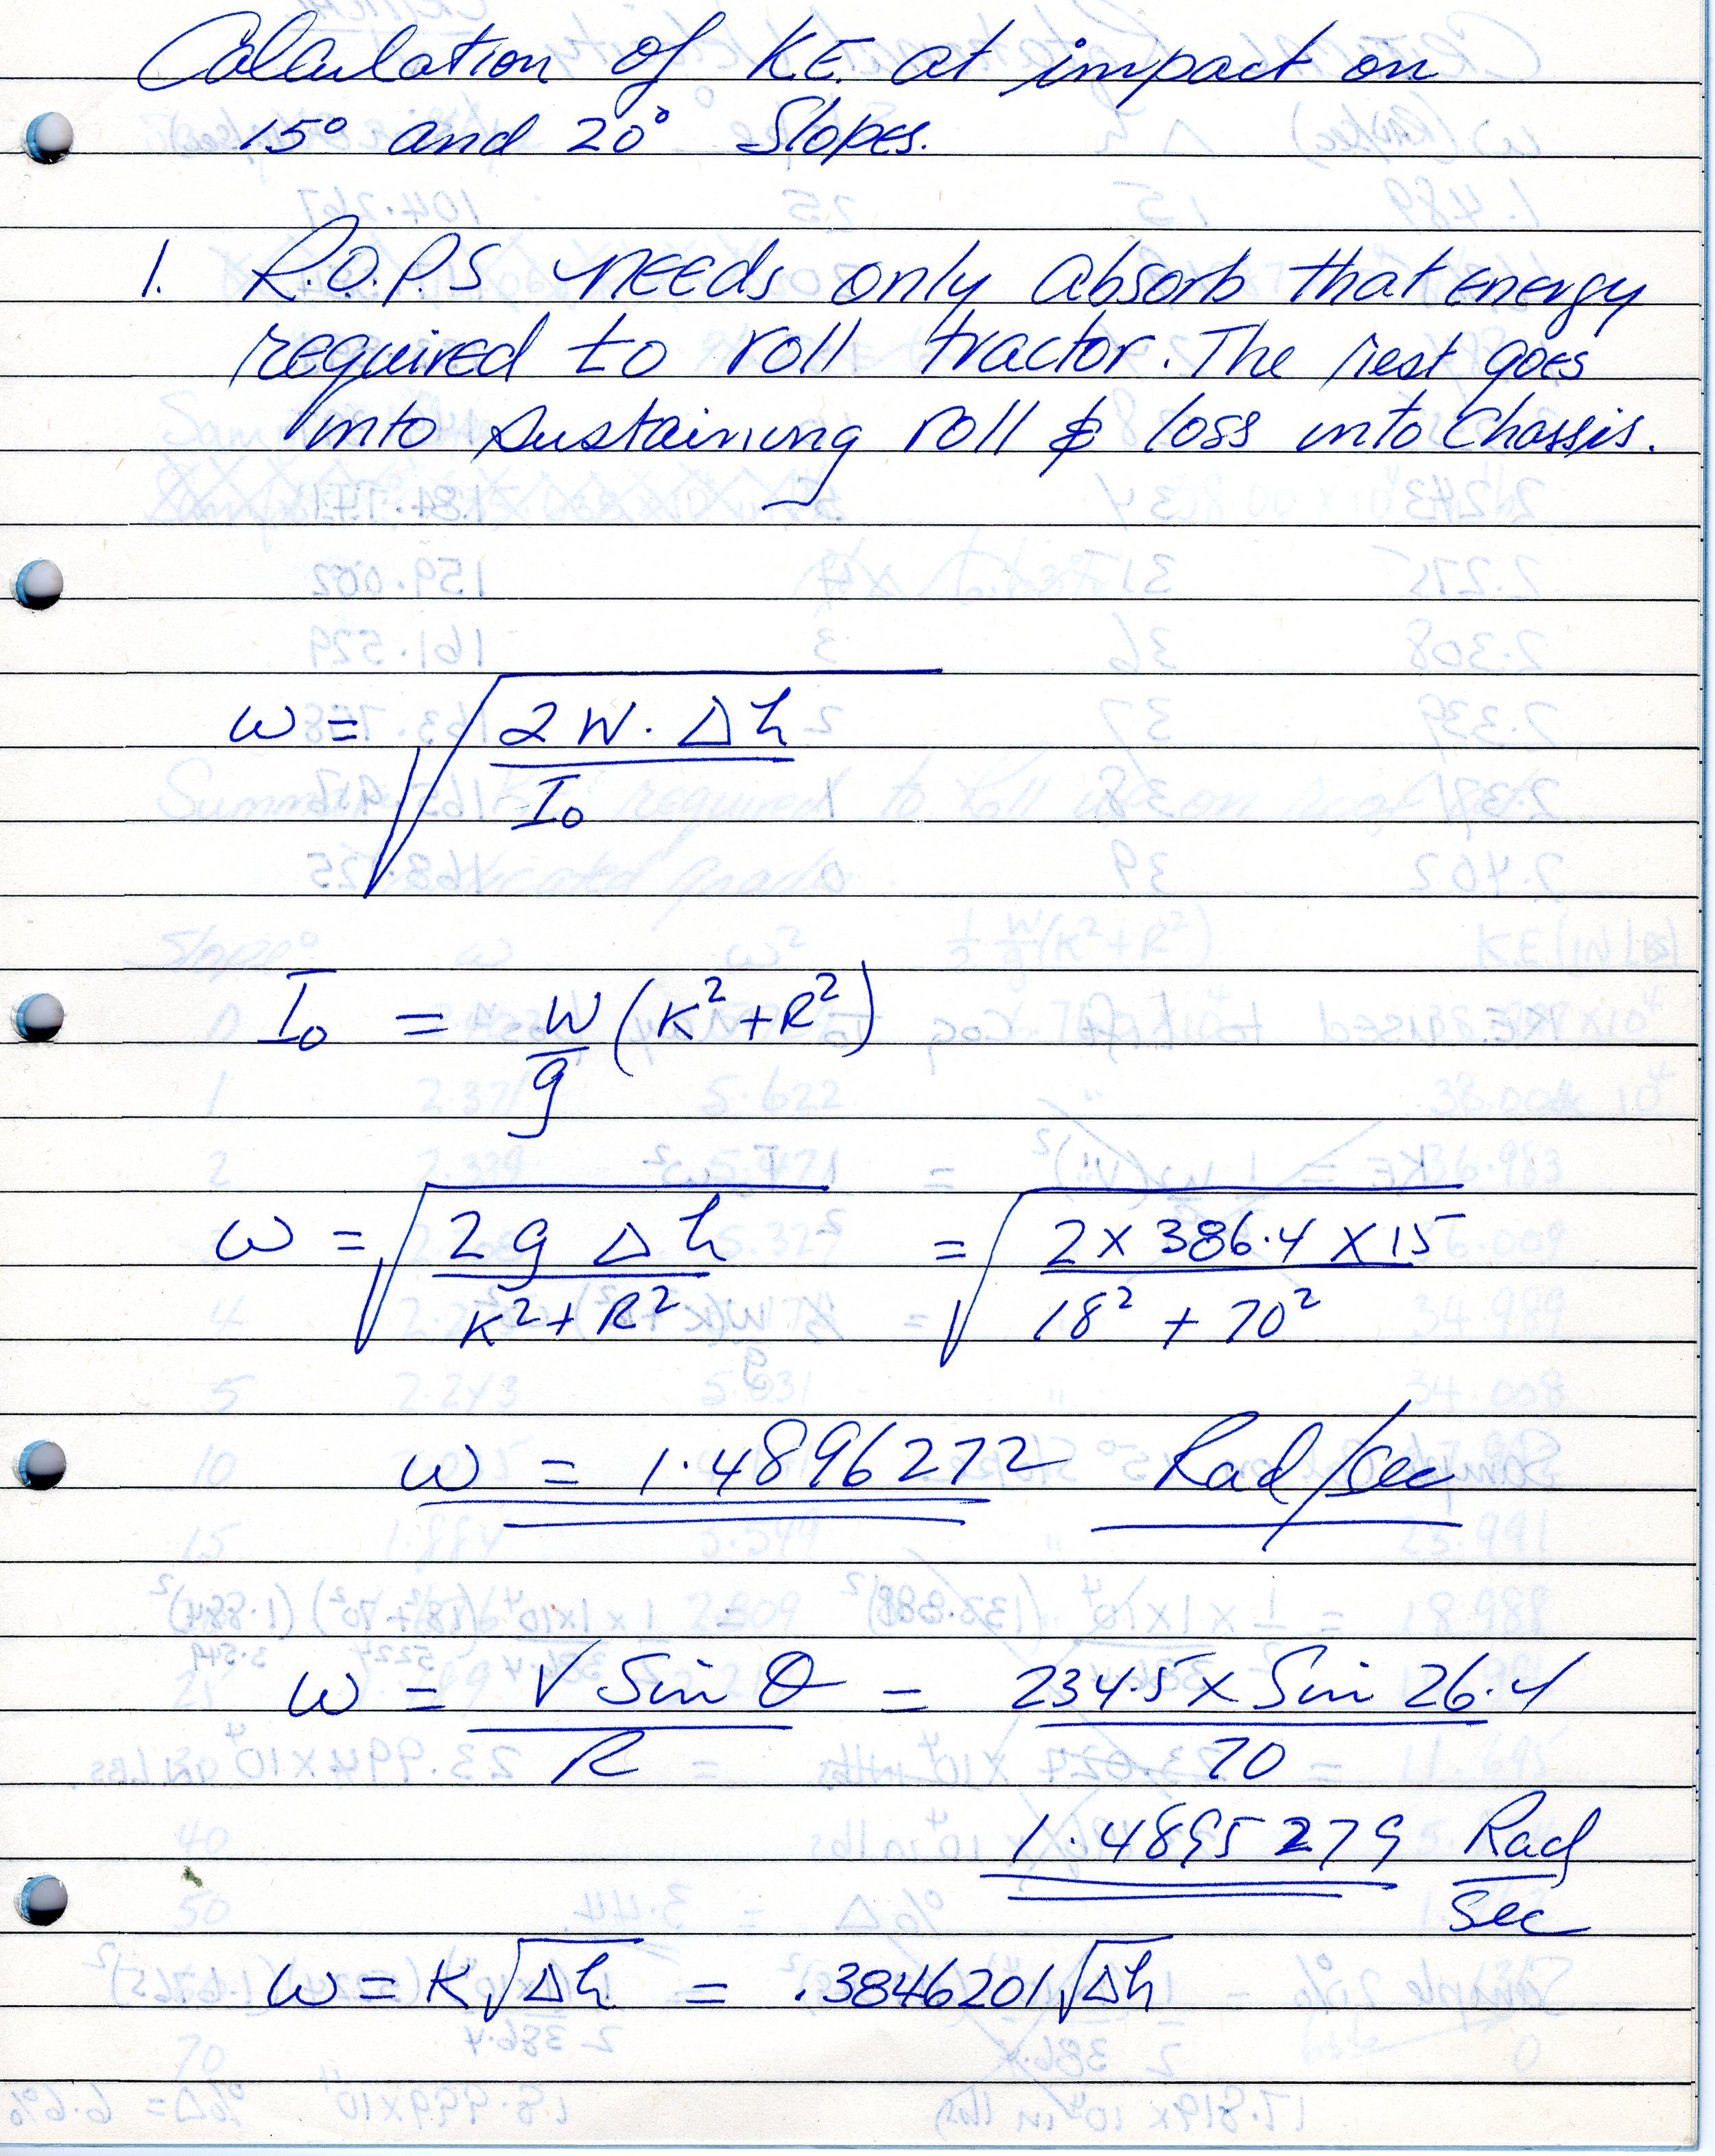 Calculation of K.E. at impact on
15° and 20° Slopes.
1. R.O.P.S NEEDS only absorb that energy
required to roll tractor. The rest goes
into sustaining roll & loss into Chassis.
ω = √(2W. Δh / I₀)
I₀ = W/g (K² + R²)
ω = √(2g Δh / K² + R²) = √(2 x 386.4 x 15 / 18² + 70²)
ω = 1.4896272 Rad/sec
ω = V Sin θ / R = 234.5 x Sin 26.4 / 70
1.4895279 Rad/sec
ω = K√Δh = .3846201√Δh